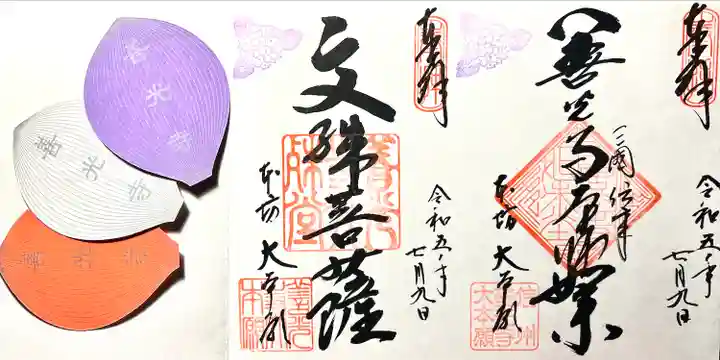 善光寺
善光寺
善光寺
奉拝
文殊菩薩
令和五年
七月九日
本坊 大本願
奉拝
三国伝来
善光寺
令和五年
七月九日
本坊 大本願
信州
大本願